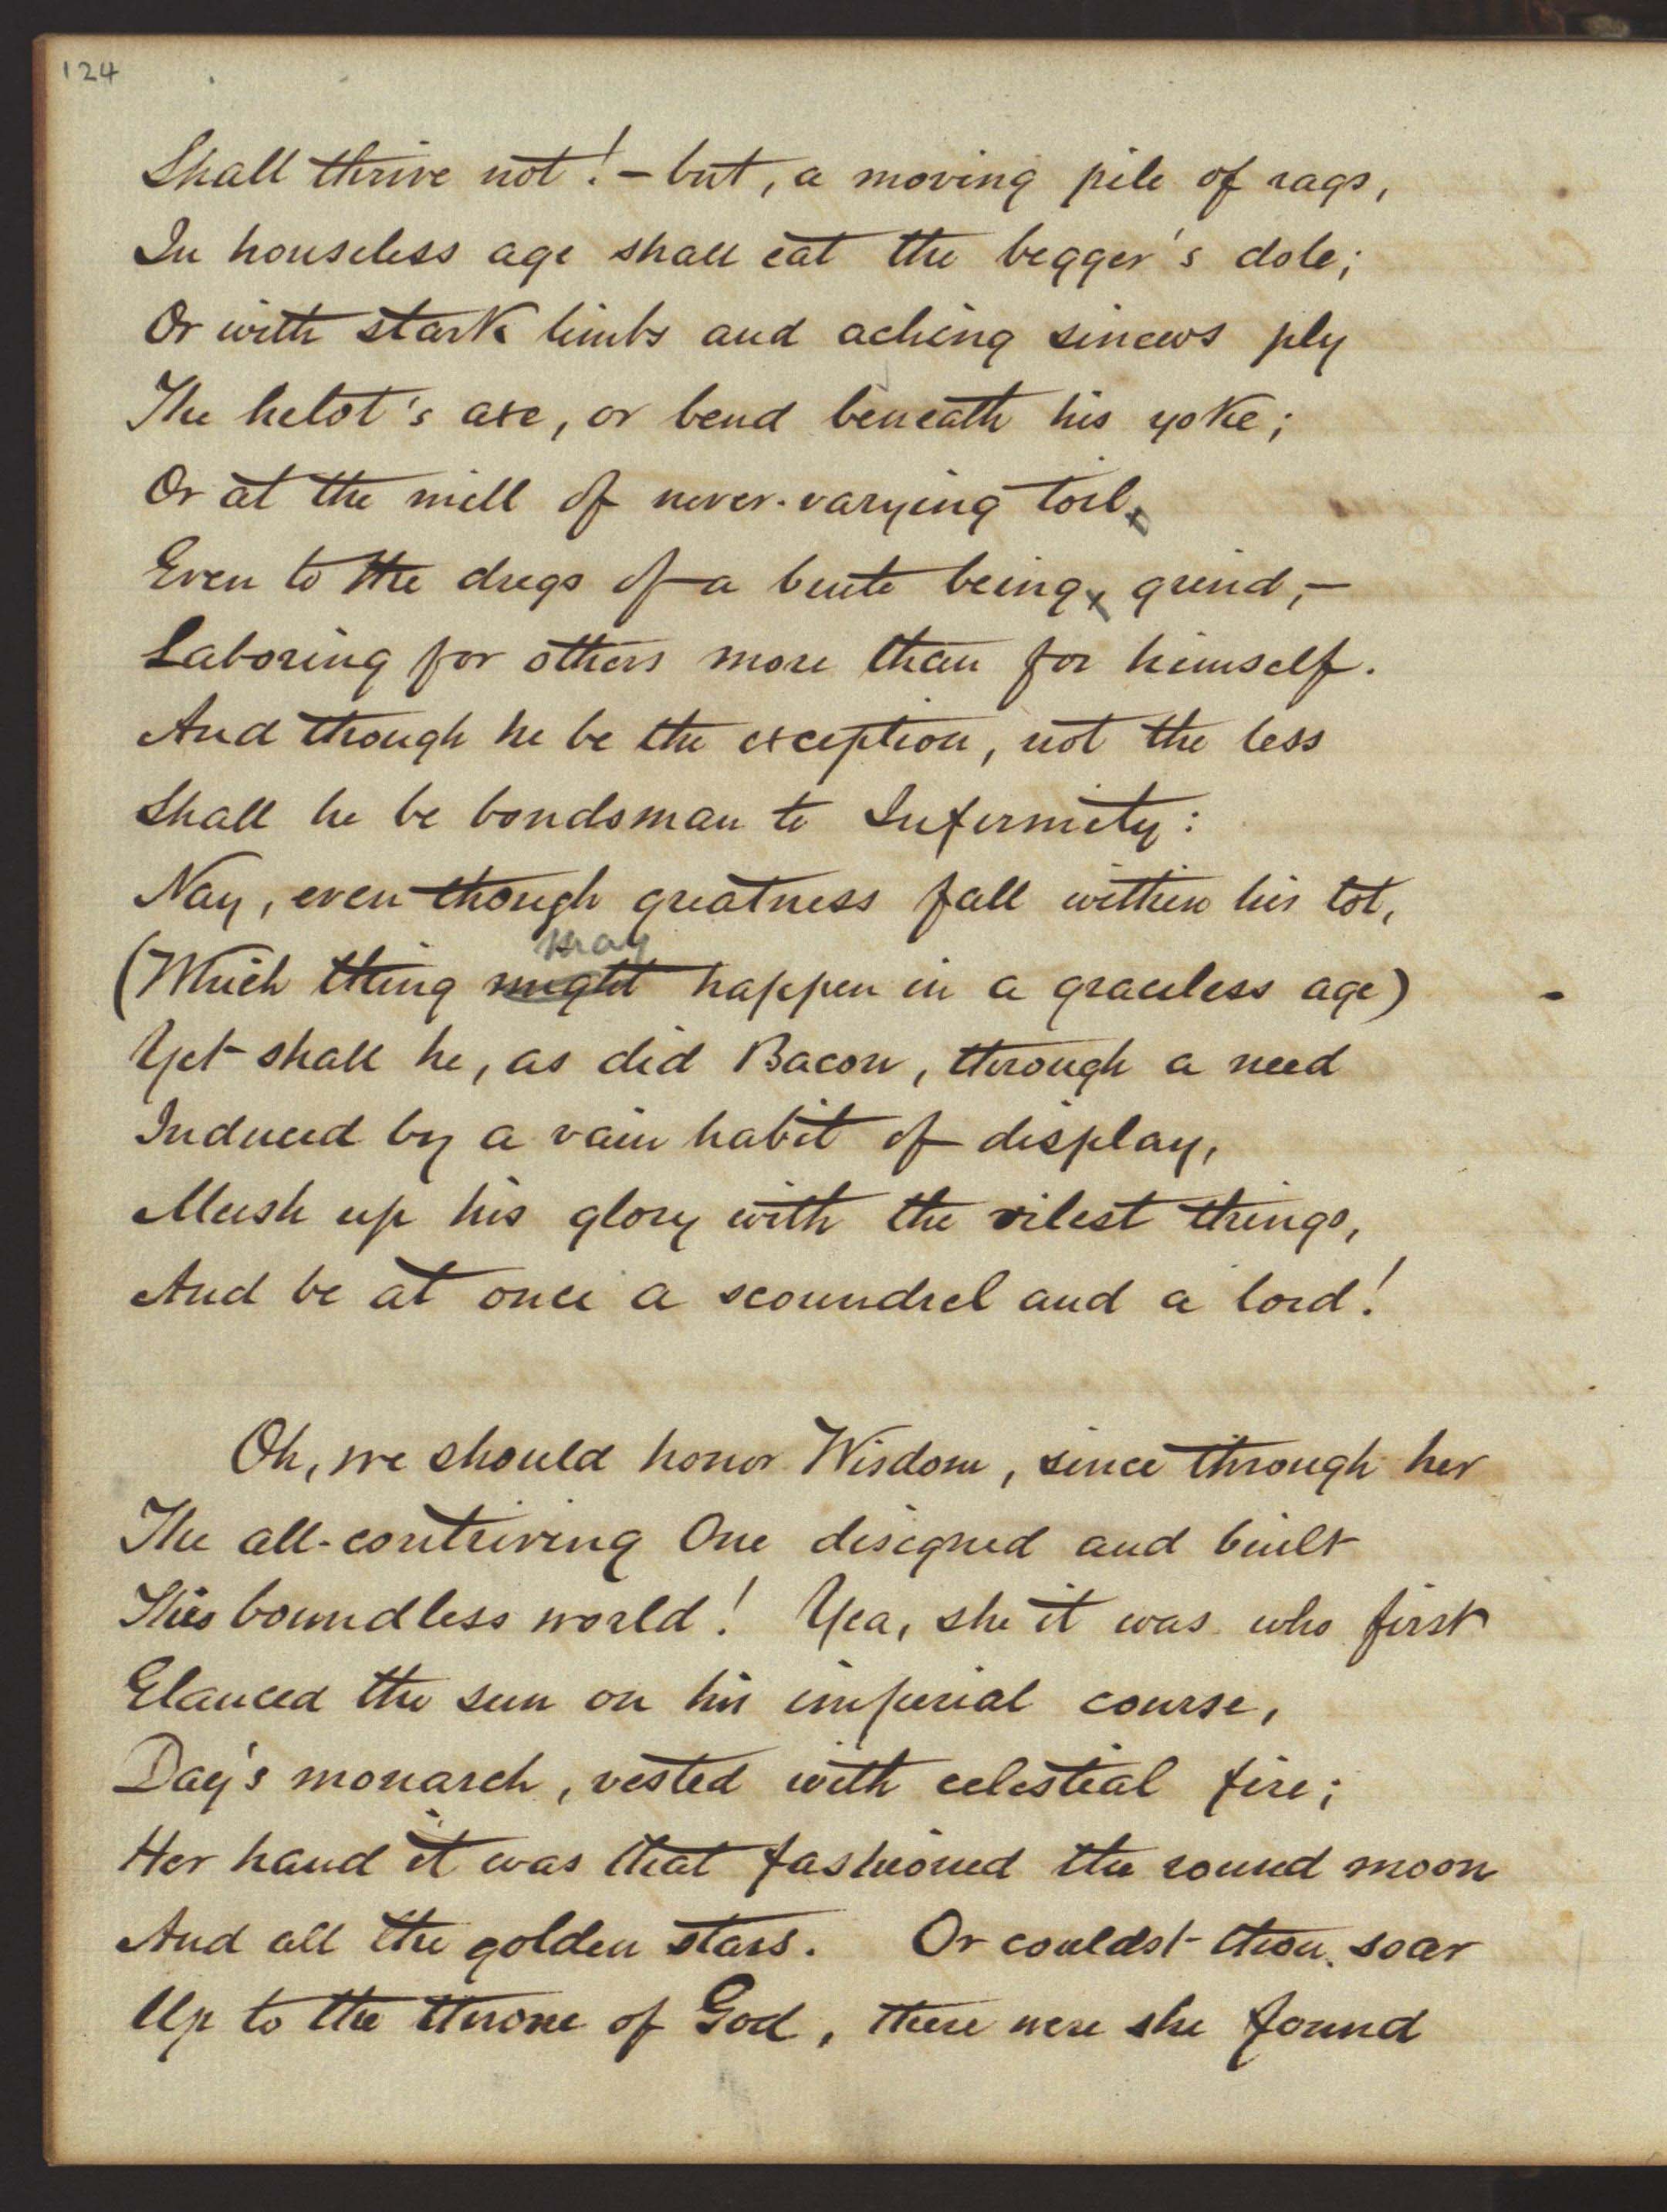 124
Shall thrive not! – but, a moving pile of rags,
In houseless age shall eat the begger's dole;
Or with stark limbs and aching sinews ply
The helot's axe, or bend beneath his yoke;
Or at the mill of never-varying toil,
Even to the dregs of a brute being, grind,–
Laboring for others more than for himself.
And though he be the exception, not the less
Shall he be bondsman to Infirmity:
Nay, even though greatness fall within his lot,
may
(Which thing might happen in a graceless age)
Yet shall he, as did Bacon, through a need
Induced by a vain habit of display,
Mush up his glory with the vilest things,
And be at once a scoundrel and a lord!
Oh, we should honor Wisdom, since through her
The all-contriving One designed and built
This boundless world! Yea, she it was who first
Elanced the sun on his imperial course,
Day's monarch, vested with celestial fire;
Her hand it was that fashioned the round moon
And all the golden stars. Or couldst thou soar
Up to the throne of God, there were she found